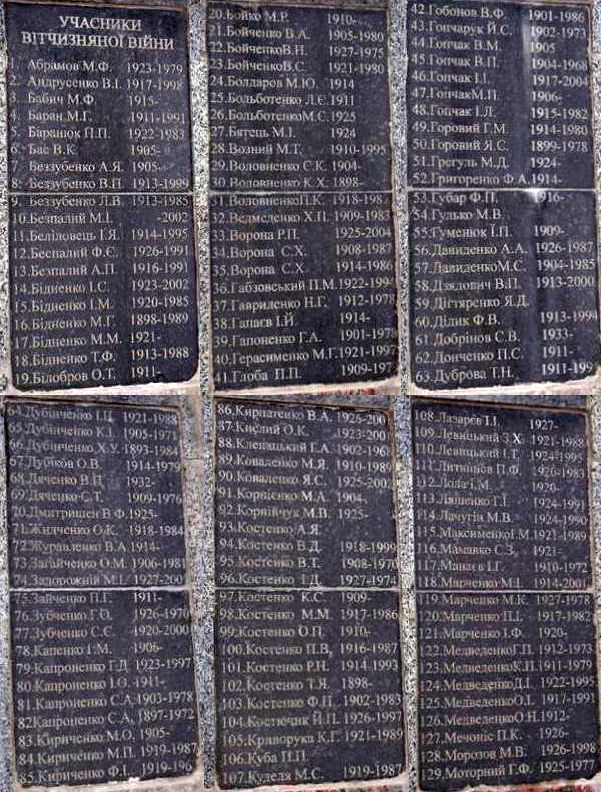 УЧАСНИКИ
ВІТЧИЗНЯНОЇ ВІЙНИ
1. Абрамов М.Ф. 1923-1979
2. Андрусенко В.І. 1917-1998
3. Бабич М.Ф. 1915-
4. Баран М.Г. 1911-1991
5. Баранюк П.П. 1922-1983
6. Бас В.К. 1905-
7. Беззубенко А.Я. 1905-
8. Беззубенко В.П. 1913-1999
9. Беззубенко Л.В. 1913-1985
10.Безпалий М.І. -2002
11.Беліловець І.Я. 1914-1995
12.Беспалий Ф.Є. 1926-1991
13.Безпалий А.П. 1916-1991
14.Бідненко І.С. 1923-2002
15.Бідненко І.М. 1920-1985
16.Бідненко М.Г. 1898-1989
17.Бідненко М.М. 1921-
18.Бідненко Т.Ф. 1913-1988
19.Білобров О.Т. 1911-
20.Бойко М.Р. 1910-
21.Бойченко В.А. 1905-1980
22.БойченкоВ.Н. 1927-1975
23.БойченкоВ.С. 1921-1980
24.Болдаров М.Ю. 1914
25.Больботенко Л.Є.1911
26.БольботенкоМ.С. 1925
27.Бятець М.І. 1924
28.Возний М.Т. 1910-1995
29.Воловненко С.К. 1904-
30.Воловненко К.Х. 1898-
31.ВоловненкоП.К. 1918-1987
32.Ведмеденко Х.П. 1909-1983
33.Ворона Р.П. 1925-2004
34.Ворона С.Х. 1908-1987
35.Ворона С.Х. 1914-1986
36.Габзовський П.М.1922-199
37.Гавриленко Н.Г. 1912-1978
38.Галаєв І.Й. 1914-
39.Гапоненко Г.А. 1901-197
40.Герасименко М.Г.1921-1997
41.Глоба П.П. 1909-197
42.Гобонов В.Ф. 1901-1986
43.Гончарук Й.С. 1902-1973
44.Гопчак В.М. 1905
45.Гопчак В.П. 1904-1968
46.Гопчак І.І. 1917-2004
47.ГопчакМ.П. 1906-
48.Гопчак І.Л. 1915-1982
49.Горовий Г.М. 1914-1980
50.Горовий Я.С. 1899-1978
51.Грегуль М.Д. 1924-
52.Григоренко Ф.А.1914-
53.Губар Ф.П. 1916-
54.Гулько М.В.
55.Гуменюк І.П. 1909-
56.Давиденко А.А. 1926-1987
57.ДавиденкоМ.С. 1904-1985
58.Дзядович В.П. 1913-2000
59.Дігтяренко Я.Д.
60.Дідик Ф.В. 1913-1994
61.Добрінов С.В. 1933-
62.Донченко П.С. 1911-
63.Дуброва Т.Н. 1911-199
64.Дубінченко І.Ц. 1921-1988
65.Дубінченко К.І. 1905-1971
66.Дубінченко Х.У. 1893-1984
67.Дубков О.В. 1914-1979
68.Дяченко В.П. 1932-
69.Дяченко С.Т. 1909-1976
70.Дмитришен В.Ф.1925-
71.Жидченко О.К. 1918-1984
72.Журавленко В.А.1914-
73.Загайченко О.М. 1906-1981
74.Задорожній М.І. 1927-200
75.Зайченко П.Г. 1911-
76.Зубченко Г.О. 1926-1970
77.Зубченко С.Є. 1920-2000
78.Капенко І.М. 1906-
79.Капроненко Г.Д 1923-1997
80.Капроненко І.О. 1911-
81.Капроненко С.А.1903-1978
82.Капроненко С.А. 1897-1972
83.Кириченко М.О. 1905-
84.Кириченко М.П. 1919-1987
85.Кириченко Ф.І. 1919-196
86.Кирпатенко В.А. 1925-200
87.Кислий О.К. 1923-200
88.Клепацький Г.А. 1902-196
89.Коваленко М.Я. 1910-1989
90.Коваленко Я.С. 1925-2002
91.Корнієнко М.А. 1904-
92.Корнійчук М.В. 1925-
93.Костенко А.Я
94.Костенко В.Д. 1918-1999
95.Костенко В.Т. 1908-1970
96.Костенко І.Д. 1927-1974
97.Костенко К.С. 1909-
98.Костенко М.М. 1917-1986
99.Костенко О.П. 1910-
100.Костенко П.В. 1916-1987
101.Костенко Р.Н. 1914-1993
102.Костенко Т.Я. 1898-
103.Костенко Ф.П. 1902-1983
104.Костючик Й.П. 1926-1997
105.Криворука К.Г. 1921-1989
106.Куба П.П.
107.Куделя М.С. 1919-1987
108.Лазарєв І.І. 1927-
109.Левицький З.Х. 1921-1988
110.Левицький І.Т. 1924-1995
111.Литвинєв П.Ф. 1926-1983
112.Лола І.М. 1920-
113.Лященко Г.І. 1924-1991
114.Лачугін М.В. 1924-1990
115.МаксименкоІ.М.1921-1989
116.Мамавко С.З. 1921-
117.Манаєв І.Г. 1910-1972
118.Марченко М.І. 1914-2001
119.Марченко М.К. 1927-1978
120.Марченко П.І. 1917-1982
121.Марченко І.Ф. 1920-
122.МедведенкоГ.П. 1912-1973
123.МедведенкоК.П.1911-1979
124.МедведенкоД.І. 1922-1995
125.МедведенкоО.І. 1917-1991
126.МедведенкоО.Н.1912-
127.Мечоніс П.К. 1926-
128.Морозов М.В. 1926-1998
129.Моторний Г.Ф. 1925-1977